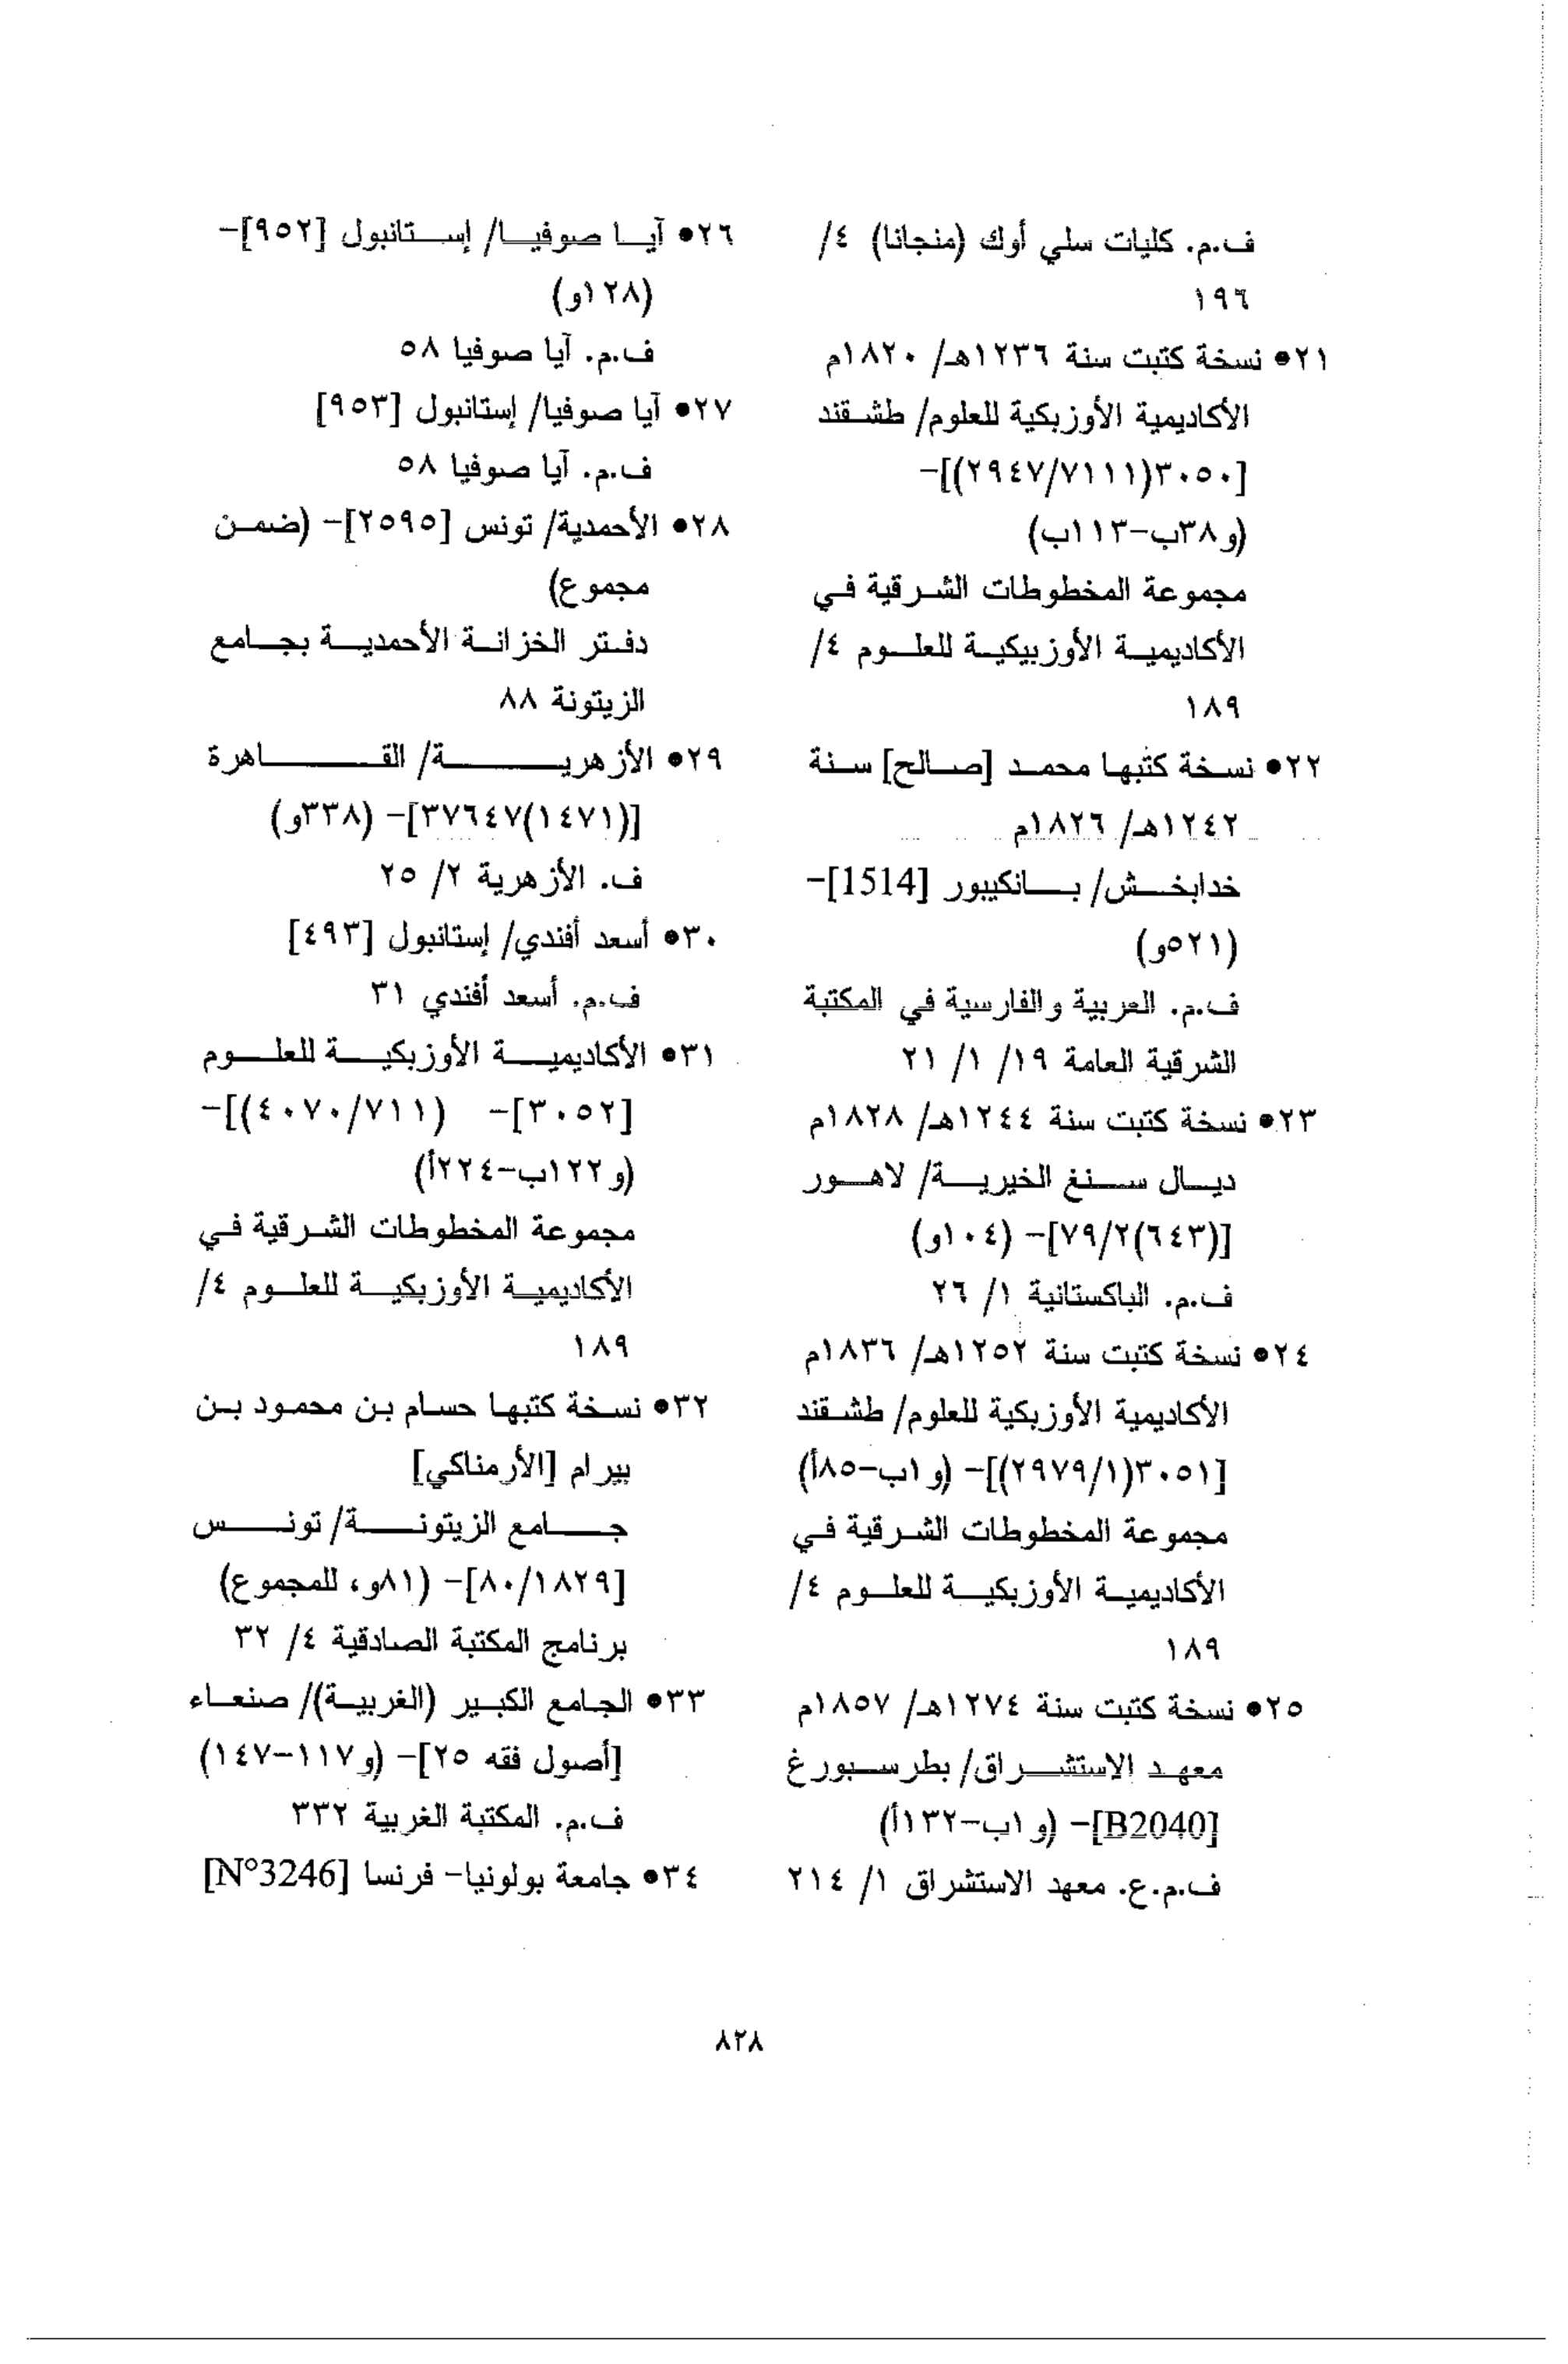 ف.م. كليات سلي أوك (منجانا) ٤/
١٩٦
٢١● نسخة كتبت سنة ١٢٣٦هـ/ ١٨٢٠م
الأكاديمية الأوزبكية للعلوم/ طشقند
[٣٠٥٠(٢٩٤٧/٧١١١)]-
(و٣٨ب-١١٣ب)
مجموعة المخطوطات الشرقية في
الأكاديمية الأوزبيكية للعلوم ٤/
١٨٩
٢٢● نسخة كتبها محمد [صالح] سنة
١٢٤٢هـ/ ١٨٢٦م
خدابخش/ بانكيبور [1514]-
(٥٢١و)
ف.م. العربية والفارسية في المكتبة
الشرقية العامة ١٩/ ١/ ٢١
٢٣● نسخة كتبت سنة ١٢٤٤هـ/ ١٨٢٨م
ديال سنغ الخيرية/ لاهور
[(٦٤٣)٧٩/٢]- (١٠٤و)
ف.م. الباكستانية ١/ ٢٦
٢٤● نسخة كتبت سنة ١٢٥٢هـ/ ١٨٣٦م
الأكاديمية الأوزبكية للعلوم/ طشقند
[٣٠٥١(٢٩٧٩/١)]- (و١ب-٨٥أ)
مجموعة المخطوطات الشرقية في
الأكاديمية الأوزبكية للعلوم ٤/
١٨٩
٢٥● نسخة كتبت سنة ١٢٧٤هـ/ ١٨٥٧م
معهد الاستشراق/ بطرسبورغ
[B2040]- (و١ب-١٣٢أ)
ف.م.ع. معهد الاستشراق ١/ ٢١٤
٢٦● آيا صوفيا/ إستانبول [٩٥٢]-
(١٢٨و)
ف.م. آيا صوفيا ٥٨
٢٧● آيا صوفيا/ إستانبول [٩٥٣]
ف.م. آيا صوفيا ٥٨
٢٨● الأحمدية/ تونس [٢٥٩٥]- (ضمن
مجموع)
دفتر الخزانة الأحمدية بجامع
الزيتونة ٨٨
٢٩● الأزهرية/ القاهرة
[(١٤٧١)٣٧٦٤٧]- (٣٣٨و)
ف. الأزهرية ٢/ ٢٥
٣٠● أسعد أفندي/ إستانبول [٤٩٣]
ف.م. أسعد أفندي ٣١
٣١● الأكاديمية الأوزبكية للعلوم
[٣٠٥٢]- (٤٠٧٠/٧١١)]-
(و١٢٢ب-٢٢٤أ)
مجموعة المخطوطات الشرقية في
الأكاديمية الأوزبكية للعلوم ٤/
١٨٩
٣٢● نسخة كتبها حسام بن محمود بن
بيرام [الأرمناكي]
جامع الزيتونة/ تونس
[٨٠/١٨٢٩]- (٨١و، للمجموع)
برنامج المكتبة الصادقية ٤/ ٣٢
٣٣● الجامع الكبير (الغربية)/ صنعاء
[أصول فقه ٢٥]- (و١١٧-١٤٧)
ف.م. المكتبة الغربية ٣٣٢
٣٤● جامعة بولونيا- فرنسا [N°3246]
٨٢٨